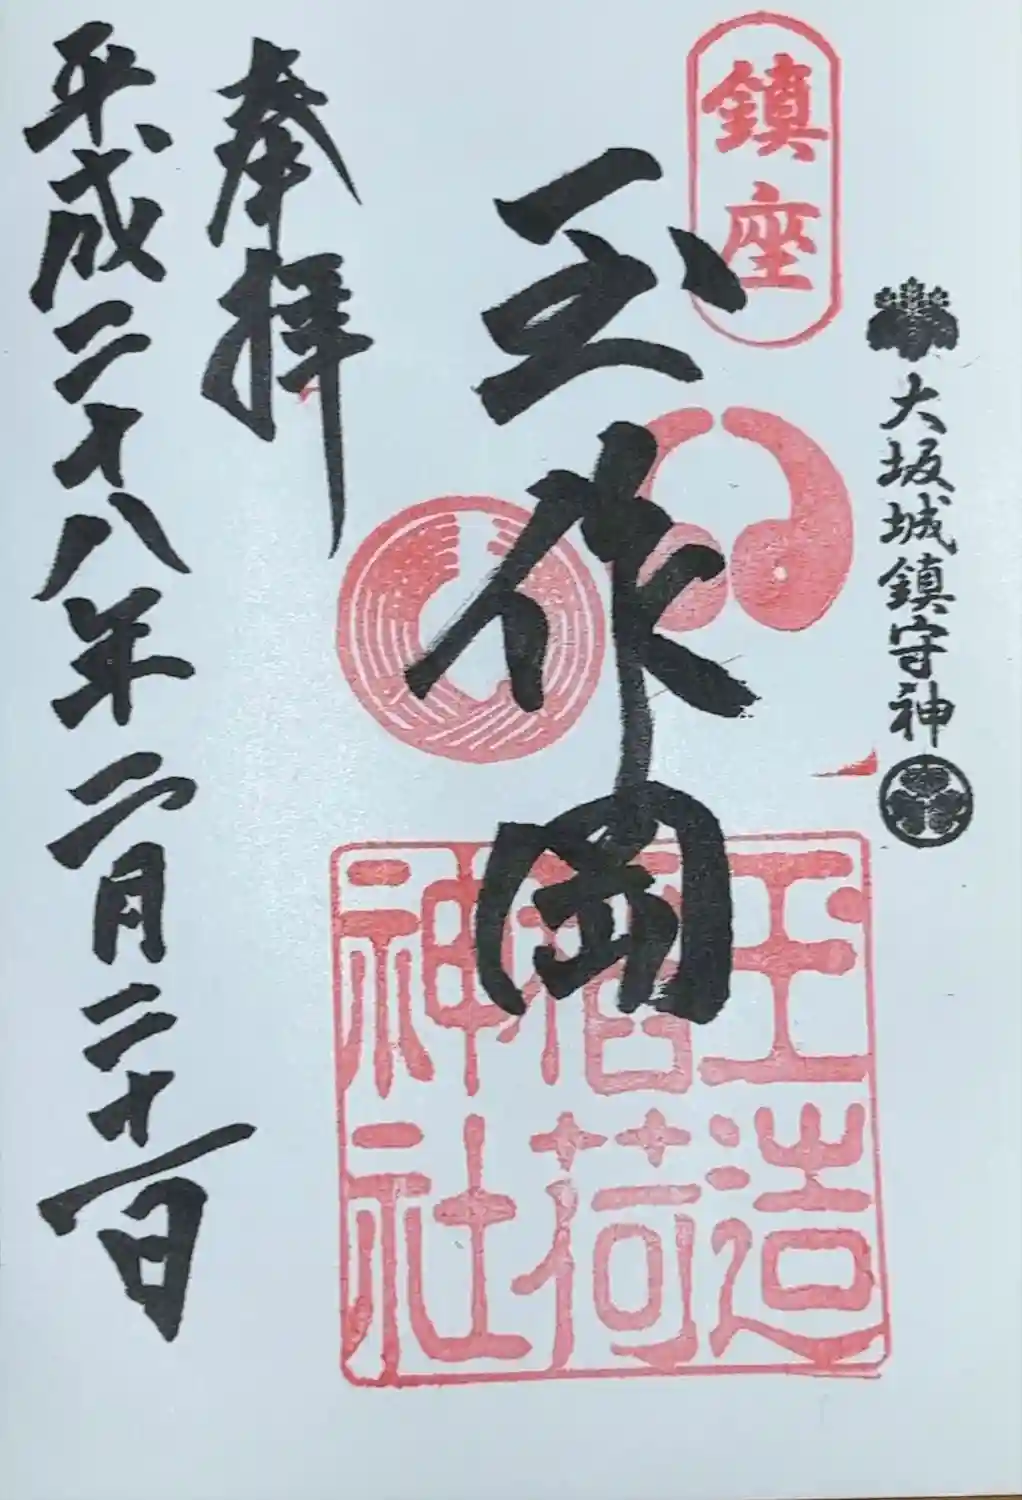 大坂城鎮守神
鎮座
玉作岡
玉造
稲荷
神社
奉拝
平成二十八年二月二十一日